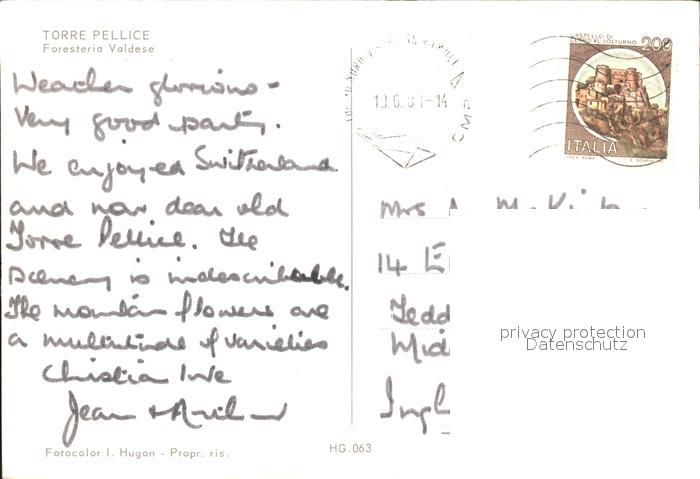 TORRE PELLICE
Foresteria Valdese
Weather glorious -
Very good party.
We enjoyed Switzerland
and now dear old
Torre Pellice. The
scenery is indescribable.
The mountain flowers are
a multitude of varieties
Christian love
Jean +
Fotocolor I. Hugon - Propr. ris.
HG.063
13.6.81-14
CMP
CASTELLO DI
CERRO AL VOLTURNO
200
ITALIA
Mrs
14 E
Tedd
Mid
Ingl
privacy protection
Datenschutz